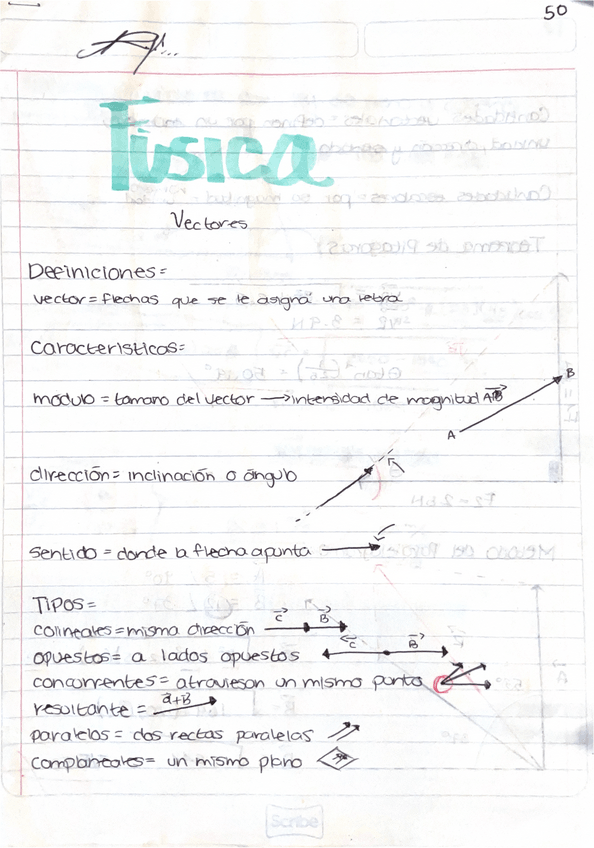 50
Física
Vectores
Definiciones=
vector= flechas que se le asigna una letra
Caracteristicas=
modulo = tamano del vector → intensidad de magnitud AB
B
A
dirección= inclinación o ángulo
sentido = donde la flecha apunta
TIPOS=
colineales= misma dirección C B
opuestos= a lados opuestos C B
concurrentes= atraviesan un mismo punto
resultante = a+B
paralelos= dos rectas paralelas
complaneales= un mismo plano
Scribe